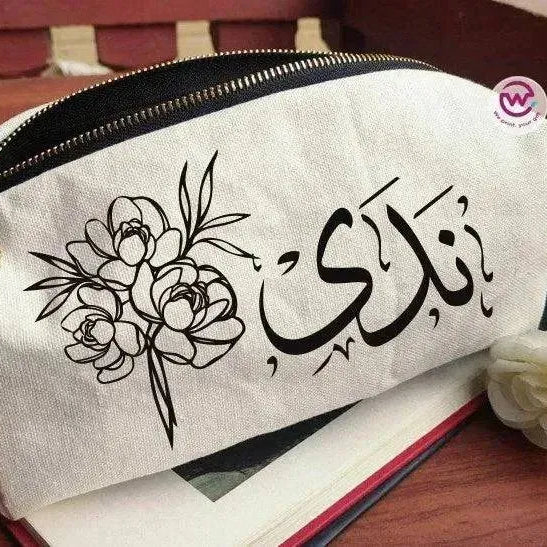 نَدَى
We print, your gift